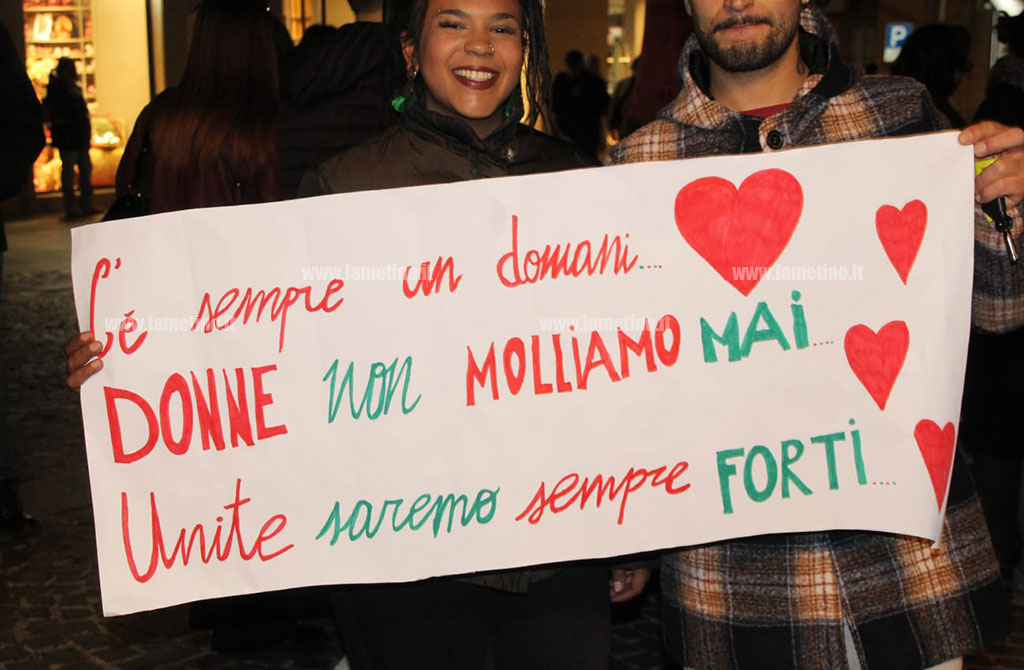 P
C'è sempre un domani....
www.lametino.it www.lametino.it
www.lametino.it www.lametino.it
DONNE non MOLLIAMO MAI....
Unite saremo sempre FORTI....